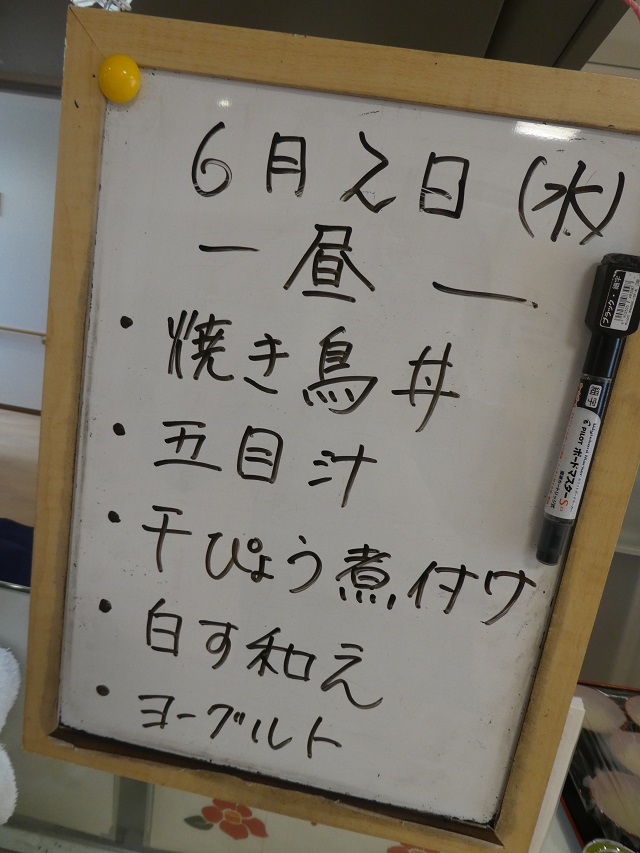 6月2日(水)
ー昼ー
・焼き鳥丼
・五目汁
・干ぴょう煮付け
・白す和え
・ヨーグルト
細字
PILOT ボードマスターS